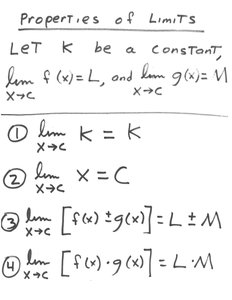 Properties of Limits
Let K be a constant,
lim x→c f(x)=L, and lim x→c g(x)=M
① lim x→c K = K
② lim x→c x = C
③ lim x→c [f(x) ± g(x)] = L ± M
④ lim x→c [f(x) · g(x)] = L·M